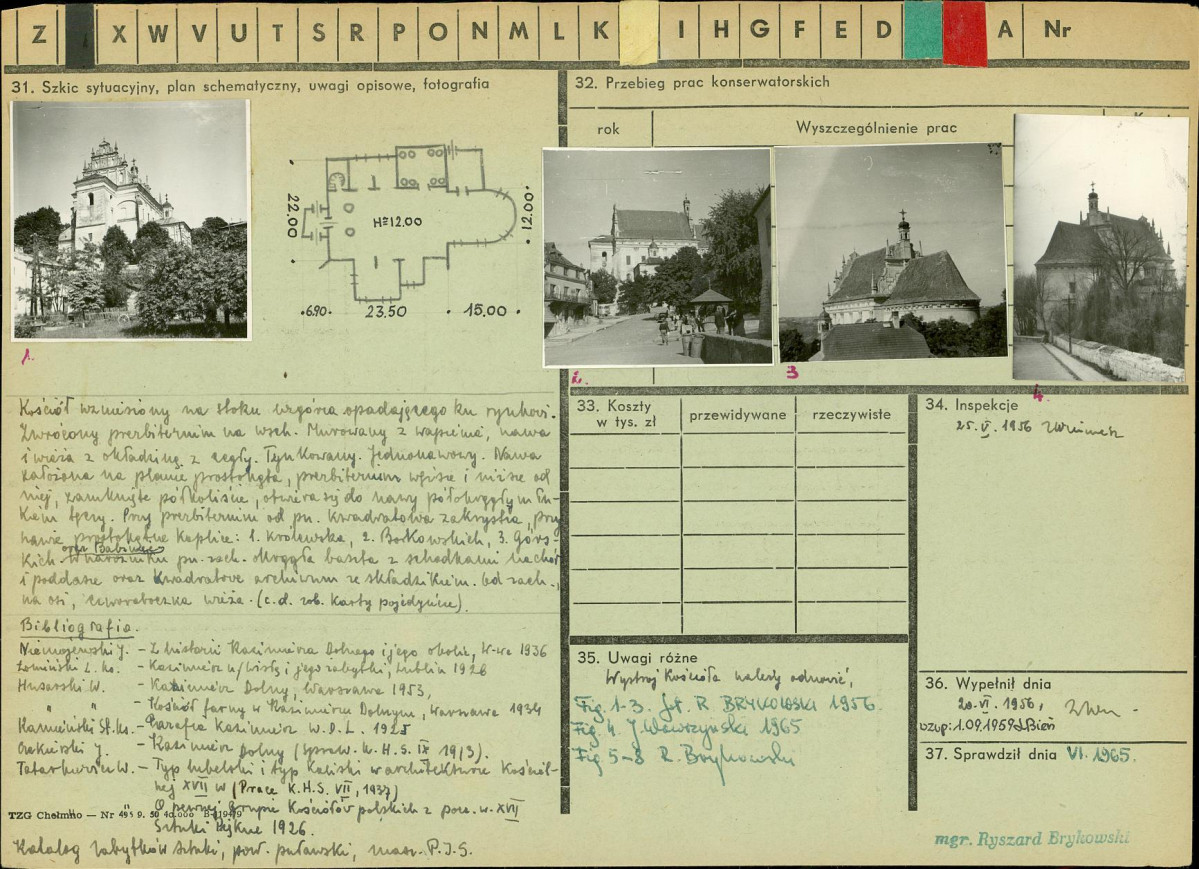 Z X W V U T S R P O N M L K I H G F E D A Nr
31. Szkic sytuacyjny, plan schematyczny, uwagi opisowe, fotografia
22.00
H=12.00
12.00
6.90 23.50 15.00
1.
Kościół wzniesiony na stoku wzgórza opadającego ku rynkowi.
Zwrócony prezbiterium na wsch. Murowany z wapienia, nawa
i wieża z okładziną z cegły. Tynkowany. Jednonawowy. Nawa
założona na planie prostokąta, prezbiterium węższe i niższe od
niej, zamknięte półkoliście, otwiera się do nawy półokrągłym łu-
kiem tęczy. Przy prezbiterium od pn. kwadratowa zakrystia, przy
nawie prostokątne kaplice: 1. Królewska, 2. Borkowskich, 3. Górs-
oraz Babiniec
kich. W narożniku pn. zach. okrągła baszta z schodkami na chór
i poddasze oraz kwadratowe archiwum ze składzikiem. Od zach.,
na osi, czworoboczna wieża. (c.d. zob. Karty pojedyńcze).
Bibliografia.
Niemojewski J. – Z historii Kazimierza Dolnego i jego okolic, W-wa 1936
Łomiński L. ks. – Kazimierz n/Wisłą i jego zabytki, Lublin 1926
Husarski W. – Kazimierz Dolny, Warszawa 1953,
" " – Kościół farny w Kazimierzu Dolnym, Warszawa 1934
Kamiński St. ks. – Parafia Kazimierz W.D.L. 1925
J. – Kazimierz Dolny (Spraw. K.H.S. IX 1913).
Tatarkiewicz W. – Typ lubelski i typ kaliski w architekturze kościel-
nej XVII w (Prace K.H.S. VII, 1937)
O pewnej grupie kościołów polskich z pocz. w. XVII
Sztuki Piękne 1926.
TZG Chełmno — Nr 9. 50 40.000
Katalog zabytków sztuki, pow. puławski, masz. P.I.S.
32. Przebieg prac konserwatorskich
rok Wyszczególnienie prac
2. 3 4.
33. Koszty
w tys. zł przewidywane rzeczywiste
34. Inspekcje
25. V. 1956
35. Uwagi różne
Wystrój kościoła należy odnowić,
Fig. 1-3. fot. R. BRYKOWSKI 1956.
Fig. 4. J. Wawrzyńska 1965
Fig 5-8 R. Brykowski
36. Wypełnił dnia
20. VI. 1956,
uzup: 1.09.1959 J.Bień
37. Sprawdził dnia VI. 1965.
mgr. Ryszard Brykowski